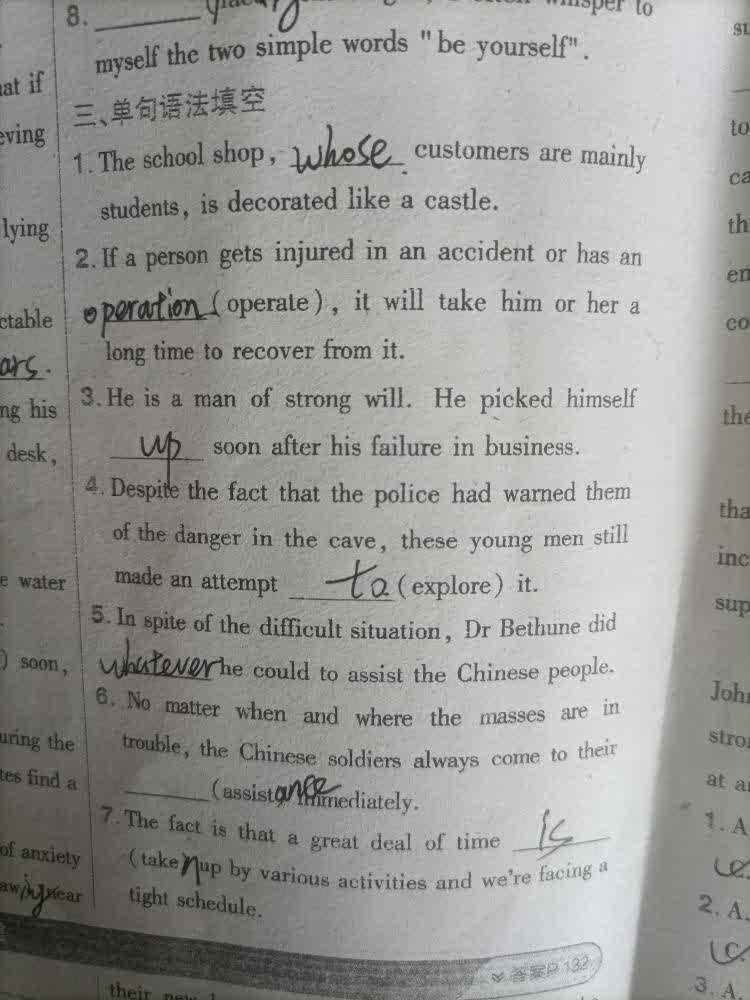 8. ________ whisper to
myself the two simple words "be yourself".
三、单句语法填空
1. The school shop, whose customers are mainly
students, is decorated like a castle.
2. If a person gets injured in an accident or has an
operation (operate), it will take him or her a
long time to recover from it.
3. He is a man of strong will. He picked himself
up soon after his failure in business.
4. Despite the fact that the police had warned them
of the danger in the cave, these young men still
made an attempt to (explore) it.
5. In spite of the difficult situation, Dr Bethune did
whatever he could to assist the Chinese people.
6. No matter when and where the masses are in
trouble, the Chinese soldiers always come to their
________ (assistance immediately.
7. The fact is that a great deal of time is
(taken up by various activities and we're facing a
tight schedule.
答案P 132
at if
eving
lying
ctable
ars.
ng his
desk,
e water
) soon,
uring the
tes find a
of anxiety
their new
su
to
ca
th
en
co
the
tha
inc
sup
John
stro
at a
1. A
2. A.
C.
3. A